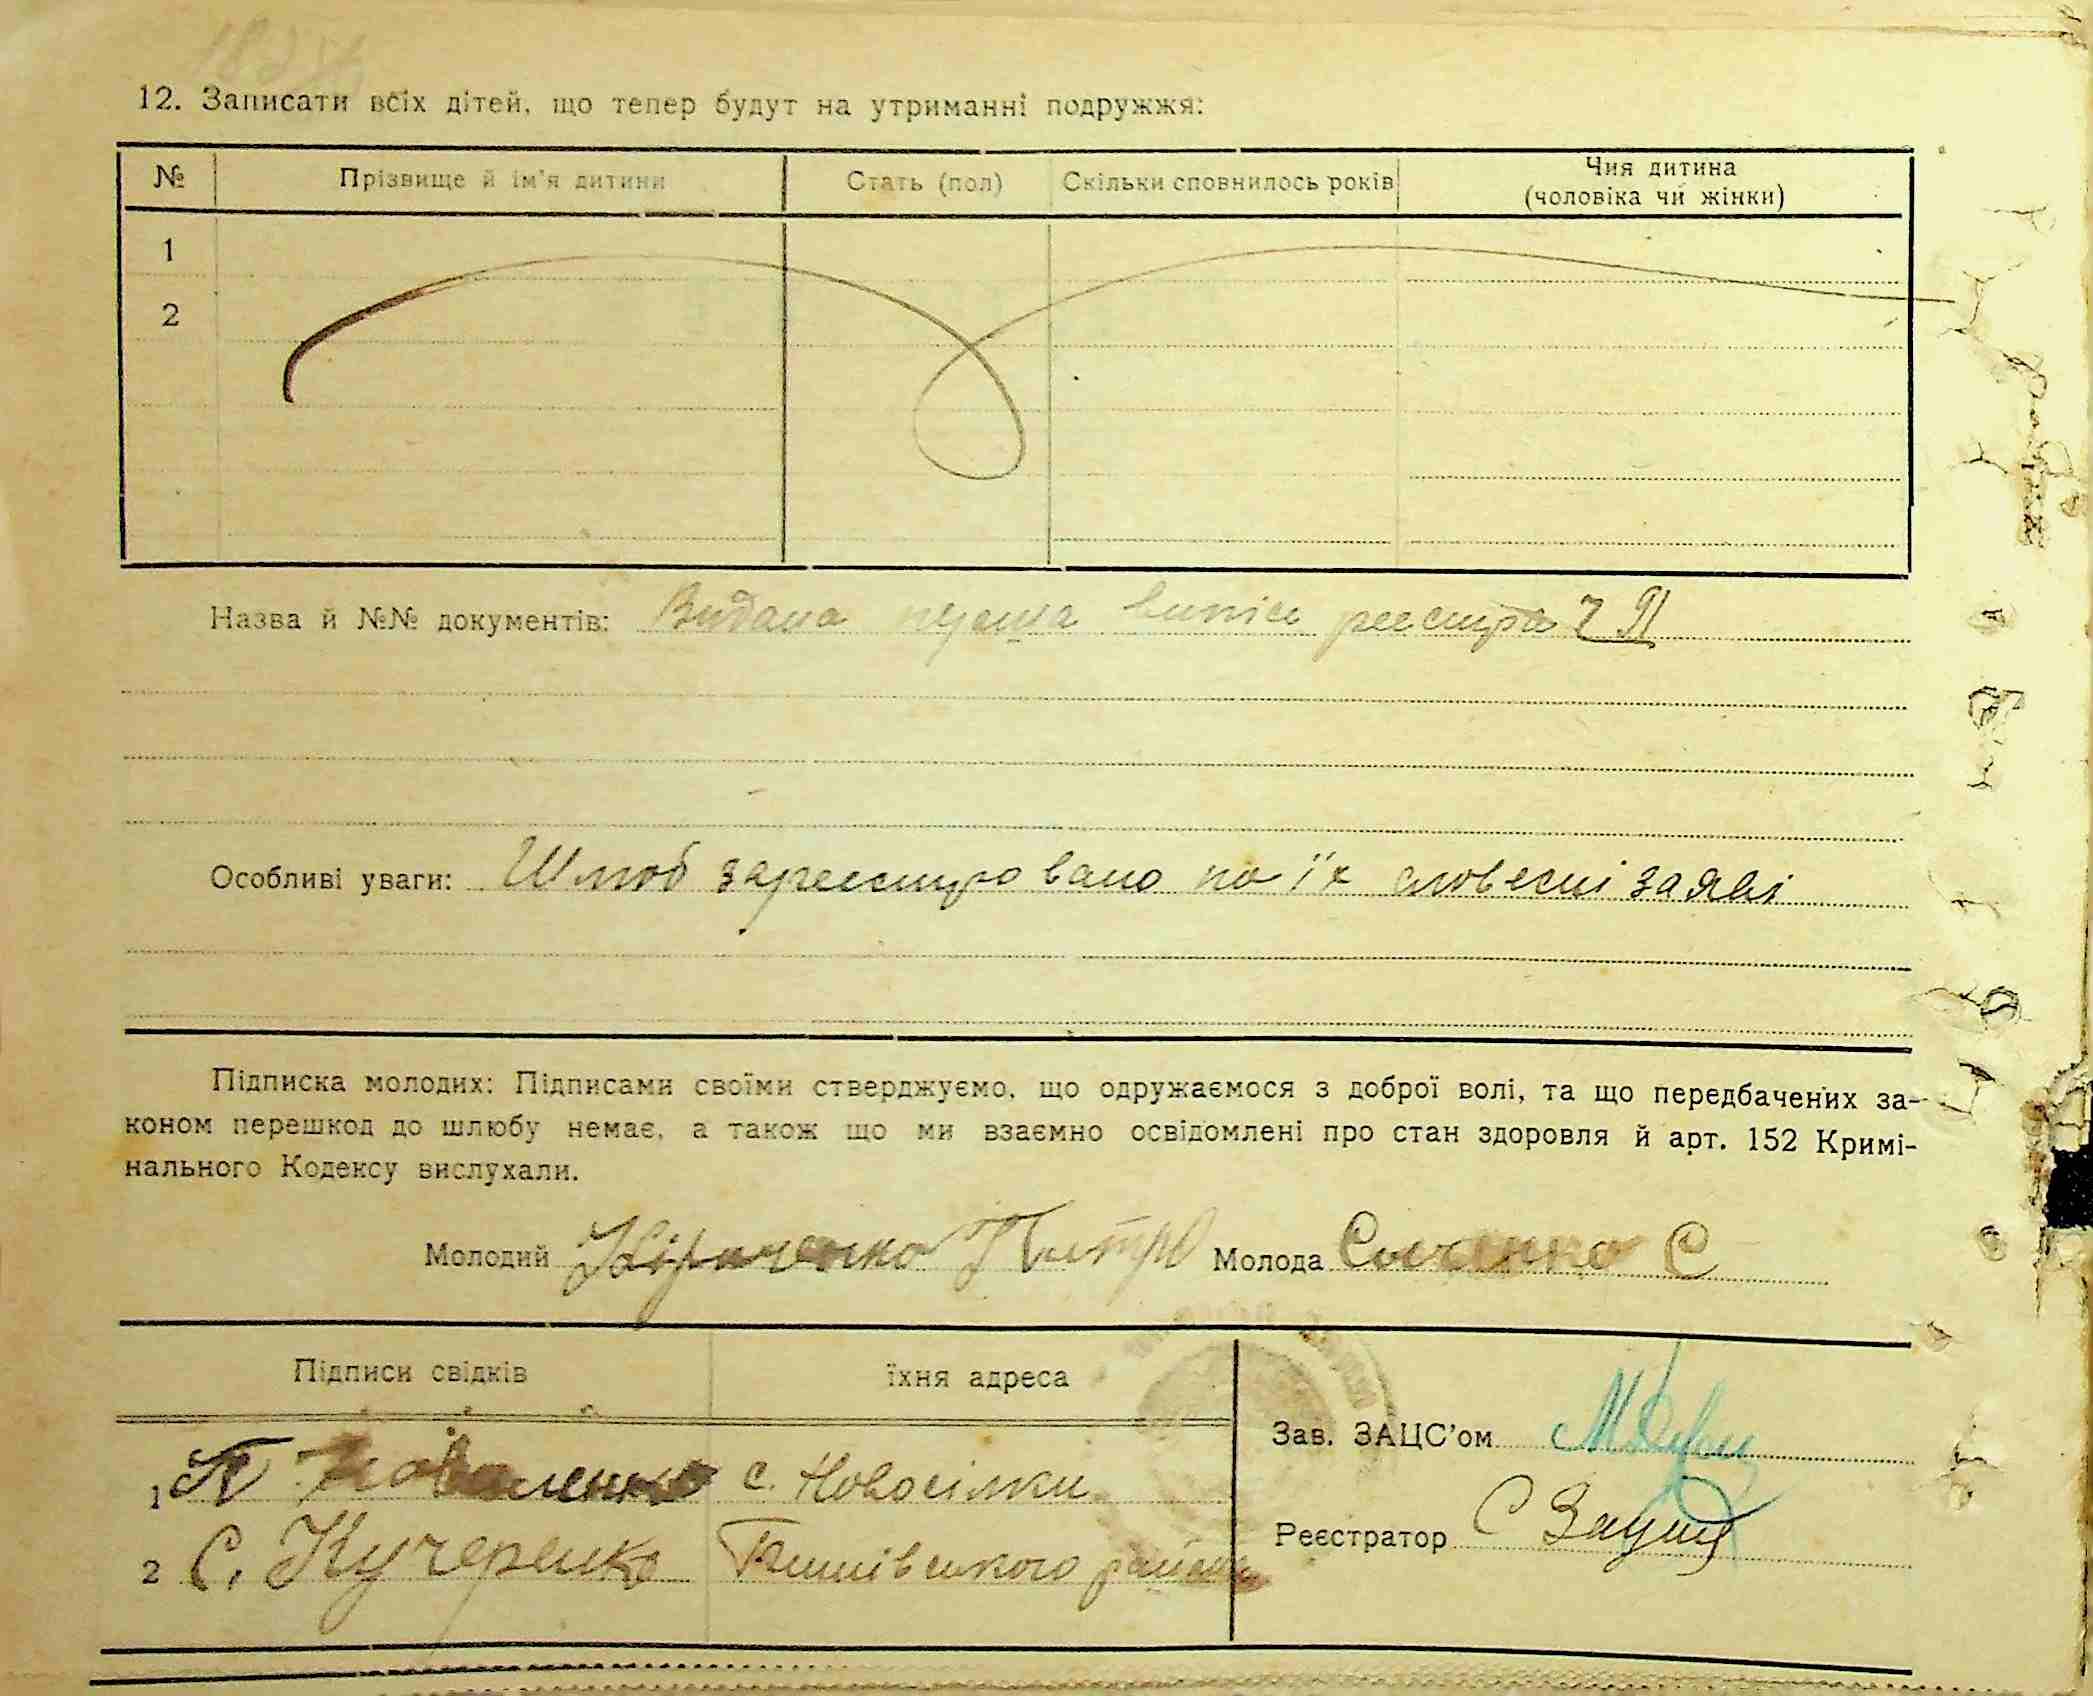 12. Записати всіх дітей, що тепер будут на утриманні подружжя:
№ Прізвище й ім'я дитини Стать (пол) Скільки сповнилось років Чия дитина (чоловіка чи жінки)
1
2
Назва й №№ документів: Видана перша випісь реестра
Особливі уваги: Шлюб зареестровано по їх словесні заяві
Підписка молодих: Підписами своїми стверджуємо, що одружаємося з доброї волі, та що передбачених за-
коном перешкод до шлюбу немає, а також що ми взаємно освідомлені про стан здоровля й арт. 152 Кримі-
нального Кодексу вислухали.
Молодий Кіриченко Петро Молода С
Підписи свідків їхня адреса
Зав. ЗАЦС'ом
1 П Коваленко с. Новосілки
Реєстратор С
2 С. Кучеренко району